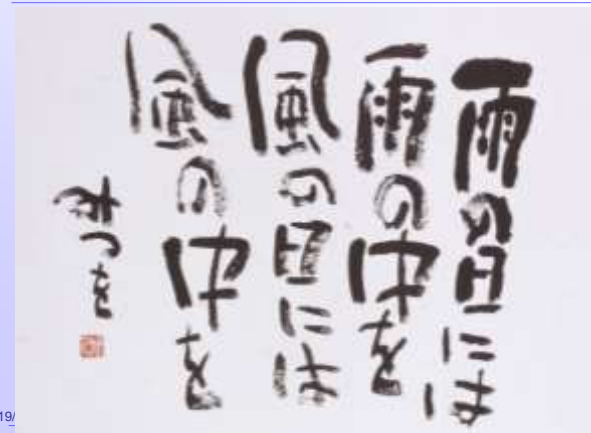 雨の日には
雨の中を
風の日には
風の中を
みつを
19/